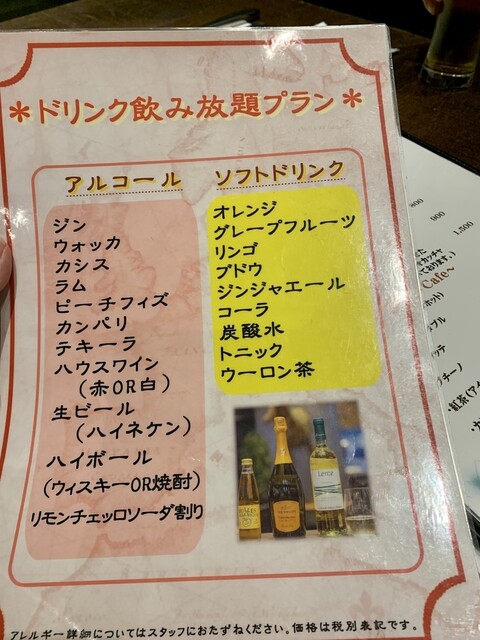 ＊ドリンク飲み放題プラン＊
アルコール
ジン
ウォッカ
カシス
ラム
ピーチフィズ
カンパリ
テキーラ
ハウスワイン
（赤OR白）
生ビール
（ハイネケン）
ハイボール
（ウィスキーOR焼酎）
リモンチェッロソーダ割り
ソフトドリンク
オレンジ
グレープフルーツ
リンゴ
ブドウ
ジンジャエール
コーラ
炭酸水
トニック
ウーロン茶
アレルギー詳細についてはスタッフにおたずねください。価格は税別表記です。
800
900
1,500
Cafe～
・紅茶（アイ